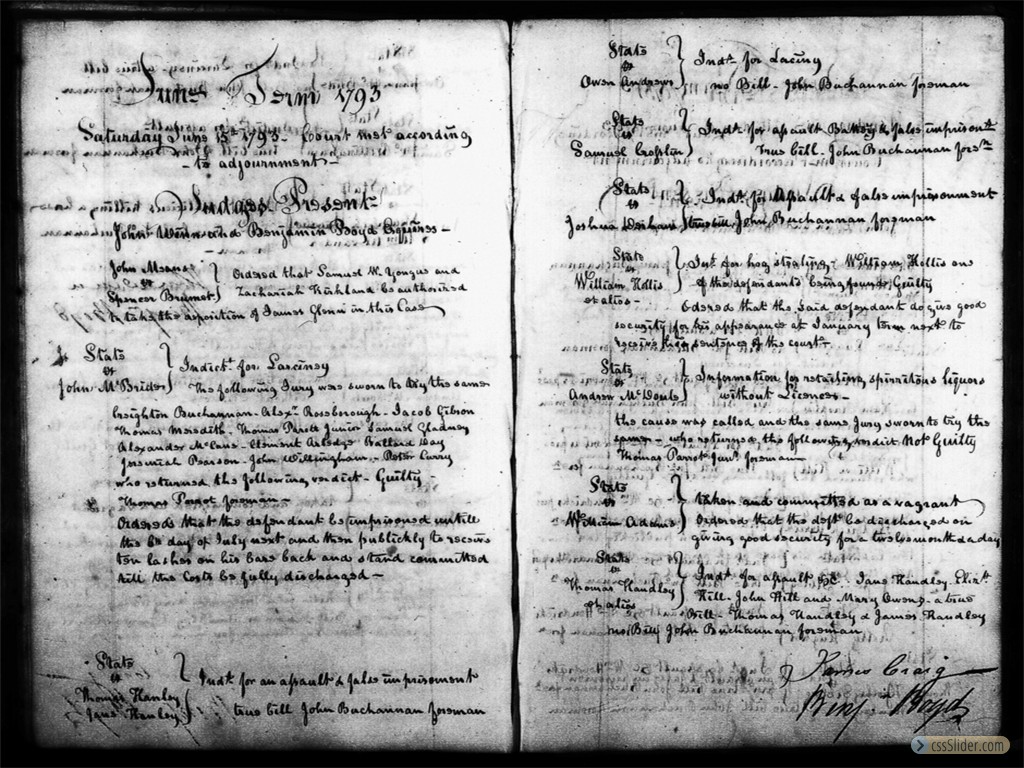 June Term 1793
Saturday June 15th 1793 - Court met according
- to adjournment -
Judges Present
John Winn and Benjamin Boyd Esquires -
John Means
vs
Spencer Brumet
Ordered that Samuel W. Yongue and
Zachariah Kirkland be authorized
to take the deposition of James Glenn in this Case
State
vs
John McBride
Indictt. for Larciney
The following Jury were sworn to try the same
Creighton Buchannan - Alexr. Rosborough - Jacob Gibson
Thomas Meredith - Thomas Parott Junior Samuel Gladney
Alexander McCane - Clement Arledge Ballard Day
Jeremiah Pearson - John Willingham - Peter Curry
who returned the following verdict - Guilty
Thomas Parrot foreman -
Ordered that the defendant be imprisoned untill
the 6th day of July next and then publickly to receive
ten lashes on his bare back and stand committed
till the Costs be fully discharged -
State
vs
Thomas Hanley
Jane Hanley
Indt. for an assault & false imprisonment
true bill John Buchannan foreman
State
vs
Owen Andrews
Indt. for Larciny
no Bill - John Buchannan foreman
State
vs
Samuel
Indt. for assault Battery & false imprisont.
True bill - John Buchannan forem
State
vs
Joshua Durham
Indt. for Assault & false imprisonment
true bill John Buchannan foreman
State
vs
William Hollis
et alios -
Indt. for hog stealing - William Hollis one
of the defendants being found Guilty
Ordered that the said defendant do give good
security for his appearance at January term next to
receive the sentence of the court
State
vs
Andrew McDowle
Information for retailing spirritous liquors
without Licences -
the cause was called and the same Jury sworn to try the
same - who returned the following verdict Not Guilty
Thomas Parrot Junr. foreman
State
vs
William Adams
taken and committed as a vagrant
Ordered that the deft. be discharged on
giving good security for a twelvemonth & a day
State
vs
Thomas Handley
et alios
Indt. for assault &c. Jane Handley Elizth.
Hill - John Hill and Mary Owens - a true
Bill - Thomas Handley & James Handley
no Bill John Buchannan foreman
James Craig
Benj. Boyd
cssSlider.com